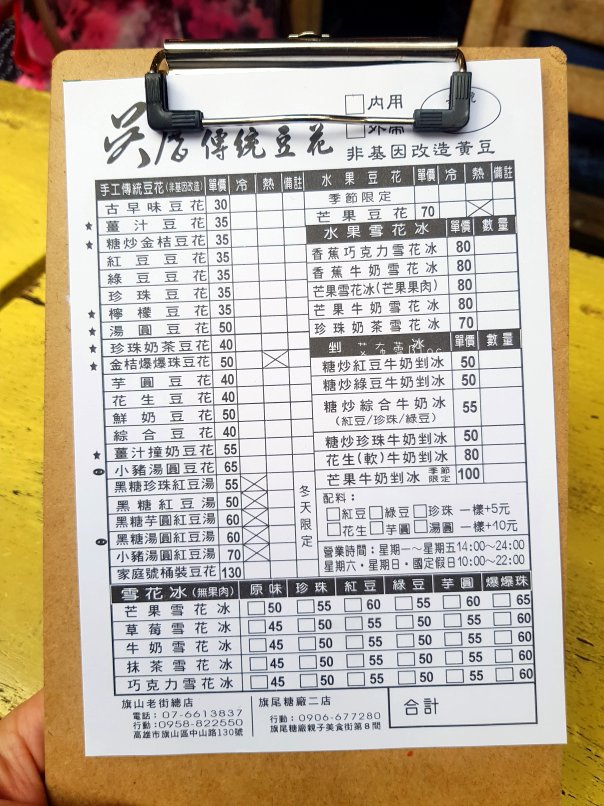 吳厝傳統豆花
內用
非基因改造黃豆
手工傳統豆花(非基因改造) 單價 冷 熱 備註
古早味豆花 30
薑汁豆花 35
糖炒金桔豆花 35
紅豆豆花 35
綠豆豆花 35
珍珠豆花 35
檸檬豆花 35
湯圓豆花 50
珍珠奶茶豆花 40
金桔爆爆珠豆花 50
芋圓豆花 40
花生豆花 40
鮮奶豆花 50
綜合豆花 40
薑汁撞奶豆花 55
小豬湯圓豆花 65
黑糖珍珠紅豆湯 55
黑糖紅豆湯 50
黑糖芋圓紅豆湯 60
黑糖湯圓紅豆湯 60
小豬湯圓紅豆湯 70
家庭號桶裝豆花 130
冬天限定
水果豆花 單價 冷 熱 備註
季節限定
芒果豆花 70
水果雪花冰 單價 數量
香蕉巧克力雪花冰 80
香蕉牛奶雪花冰 80
芒果雪花冰(芒果果肉) 80
芒果牛奶雪花冰 80
珍珠奶茶雪花冰 70
剉 冰 單價 數量
糖炒紅豆牛奶剉冰 50
糖炒綠豆牛奶剉冰 50
糖炒綜合牛奶冰 55
(紅豆/珍珠/綠豆)
糖炒珍珠牛奶剉冰 50
花生(軟)牛奶剉冰 80
芒果牛奶剉冰 季節限定 100
配料：
紅豆 綠豆 珍珠 一樣+5元
花生 芋圓 湯圓 一樣+10元
營業時間：星期一～星期五14:00～24:00
星期六・星期日・國定假日10:00～22:00
雪花冰(無果肉) 原味 珍珠 紅豆 綠豆 芋圓 爆爆珠
芒果雪花冰 50 55 60 55 60 65
草莓雪花冰 45 50 55 50 55 60
牛奶雪花冰 45 50 55 50 55 60
抹茶雪花冰 45 50 55 50 55 60
巧克力雪花冰 45 50 55 50 55 60
旗山老街總店
電話：07-6613837
行動：0958-822550
高雄市旗山區中山路130號
旗尾糖廠二店
行動：0906-677280
旗尾糖廠親子美食街第8間
合計